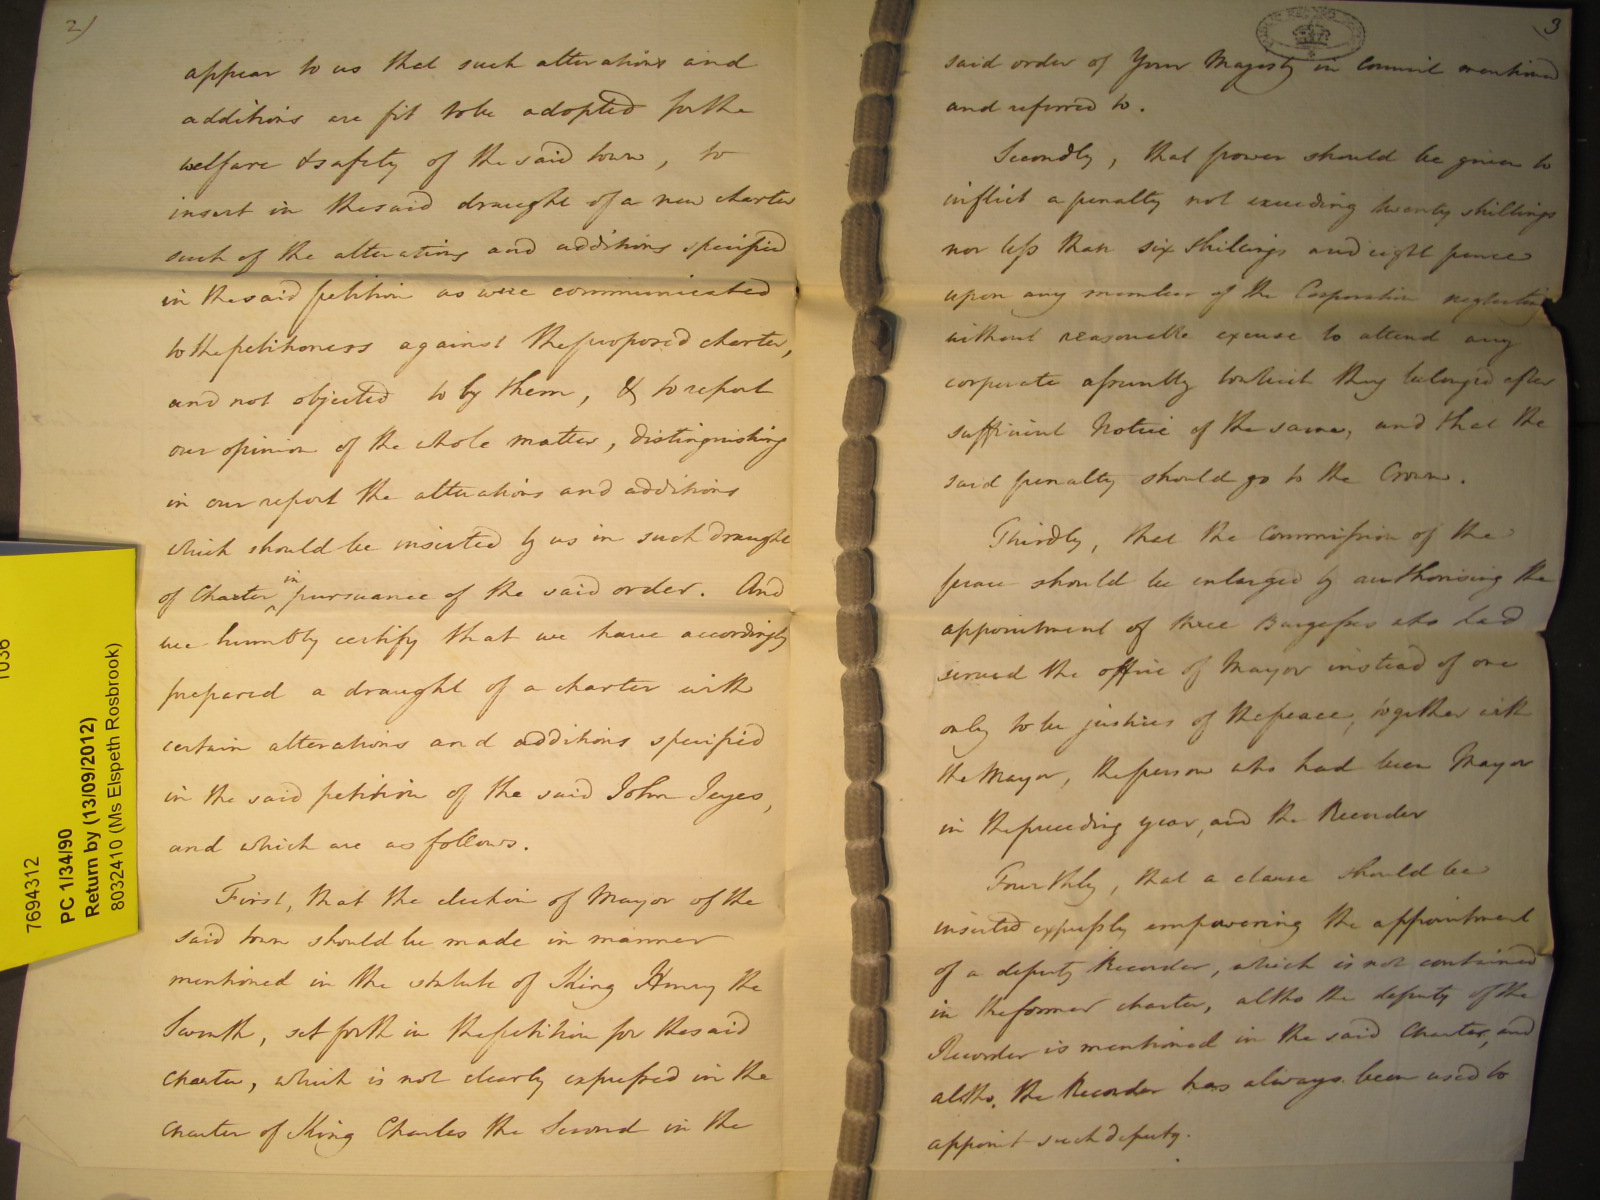 2)
appear to us that such alterations and
additions are fit to be adopted for the
welfare & safety of the said town, to
insert in the said draught of a new charter
such of the alterations and additions specified
in the said petition as were communicated
to the petitioners against the proposed charter,
and not objected to by them, & to report
our opinion of the whole matter, distinguishing
in our report the alterations and additions
which should be inserted by us in such draught
of Charter in pursuance of the said order. And
we humbly certify that we have accordingly
prepared a draught of a charter with
certain alterations and additions specified
in the said petition of the said John Jeyes,
and which are as follows.
First, that the election of Mayor of the
said town should be made in manner
mentioned in the statute of King Henry the
Seventh, set forth in the petition for the said
Charter, which is not clearly expressed in the
Charter of King Charles the Second in the
3
said order of Your Majesty in Council mentioned
and referred to.
Secondly, that power should be given to
inflict a penalty not exceeding twenty shillings
nor less than six shillings and eight pence
upon any member of the Corporation neglecting
without reasonable excuse to attend any
corporate assembly to which they belonged after
sufficient Notice of the same, and that the
said penalty should go to the Crown.
Thirdly, that the Commission of the
peace should be enlarged by authorising the
appointment of three Burgesses who had
served the office of Mayor instead of one
only to be justices of the peace, together with
the Mayor, the person who had been Mayor
in the preceding year, and the Recorder
Fourthly, that a clause should be
inserted expressly empowering the appointment
of a deputy Recorder, which is not contained
in the former charter, altho the deputy of the
Recorder is mentioned in the said Charter, and
altho. the Recorder has always been used to
appoint such deputy.
1036
7694312
PC 1/34/90
Return by (13/09/2012)
8032410 (Ms Elspeth Rosbrook)